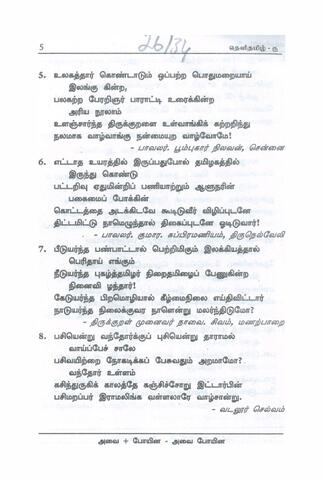 5
26/34
தெளிதமிழ் - ௫
5. உலகத்தார் கொண்டாடும் ஒப்பற்ற பொதுமறையாய்
இலங்கு கின்ற,
பலகற்ற பேரறிஞர் பாராட்டி உரைக்கின்ற
அரிய நூலாம்
உளஞ்சார்ந்த திருக்குறளை உள்வாங்கிக் கற்றறிந்து
நலமாக வாழ்வாங்கு நன்மையுற வாழ்வோமே!
- பாவலர். பூம்புகார் நிலவன், சென்னை
6. எட்டாத உயரத்தில் இருப்பதுபோல் தமிழகத்தில்
இருந்து கொண்டு
பட்டறிவு ஏதுமின்றிப் பணியாற்றும் ஆளுநரின்
பகைமைப் போக்கின்
கொட்டத்தை அடக்கிடவே கூடிடுவீர் விழிப்புடனே
திட்டமிட்டு நாமெழுந்தால் திகைப்புடனே ஓடிடுவார்!
- பாவலர். குமார. சுப்பிரமணியம், திருநெல்வேலி
7. பீடுயர்ந்த பண்பாட்டால் பெற்றிமிகும் இலக்கியத்தால்
பெரிதாய் எங்கும்
நீடுயர்ந்த புகழ்த்தமிழர் நிறைதமிழைப் பேணுகின்ற
நினைவி ழந்தார்!
கேடுயர்ந்த பிறமொழியால் கீழ்மைநிலை எய்திவிட்டார்
நாடுயர்ந்த நிலைக்குவர நாளென்று மலர்ந்திடுமோ?
- திருக்குறள் முனைவர் நாவை. சிவம், மணற்பாறை
8. பசியென்று வந்தோர்க்குப் புசியென்று தாராமல்
வாய்ப்பேச் சாலே
பசிவயிற்றை நோகடிக்கப் பேசுவதும் அறமாமோ?
வந்தோர் உள்ளம்
கசிந்துருகிக் காலத்தே கஞ்சிச்சோறு இட்டார்பின்
பசிமறப்பர் இராமலிங்க வள்ளலாரே வாழ்சான்று.
- வடலூர் செல்வம்
அவை + போயின - அவை போயின